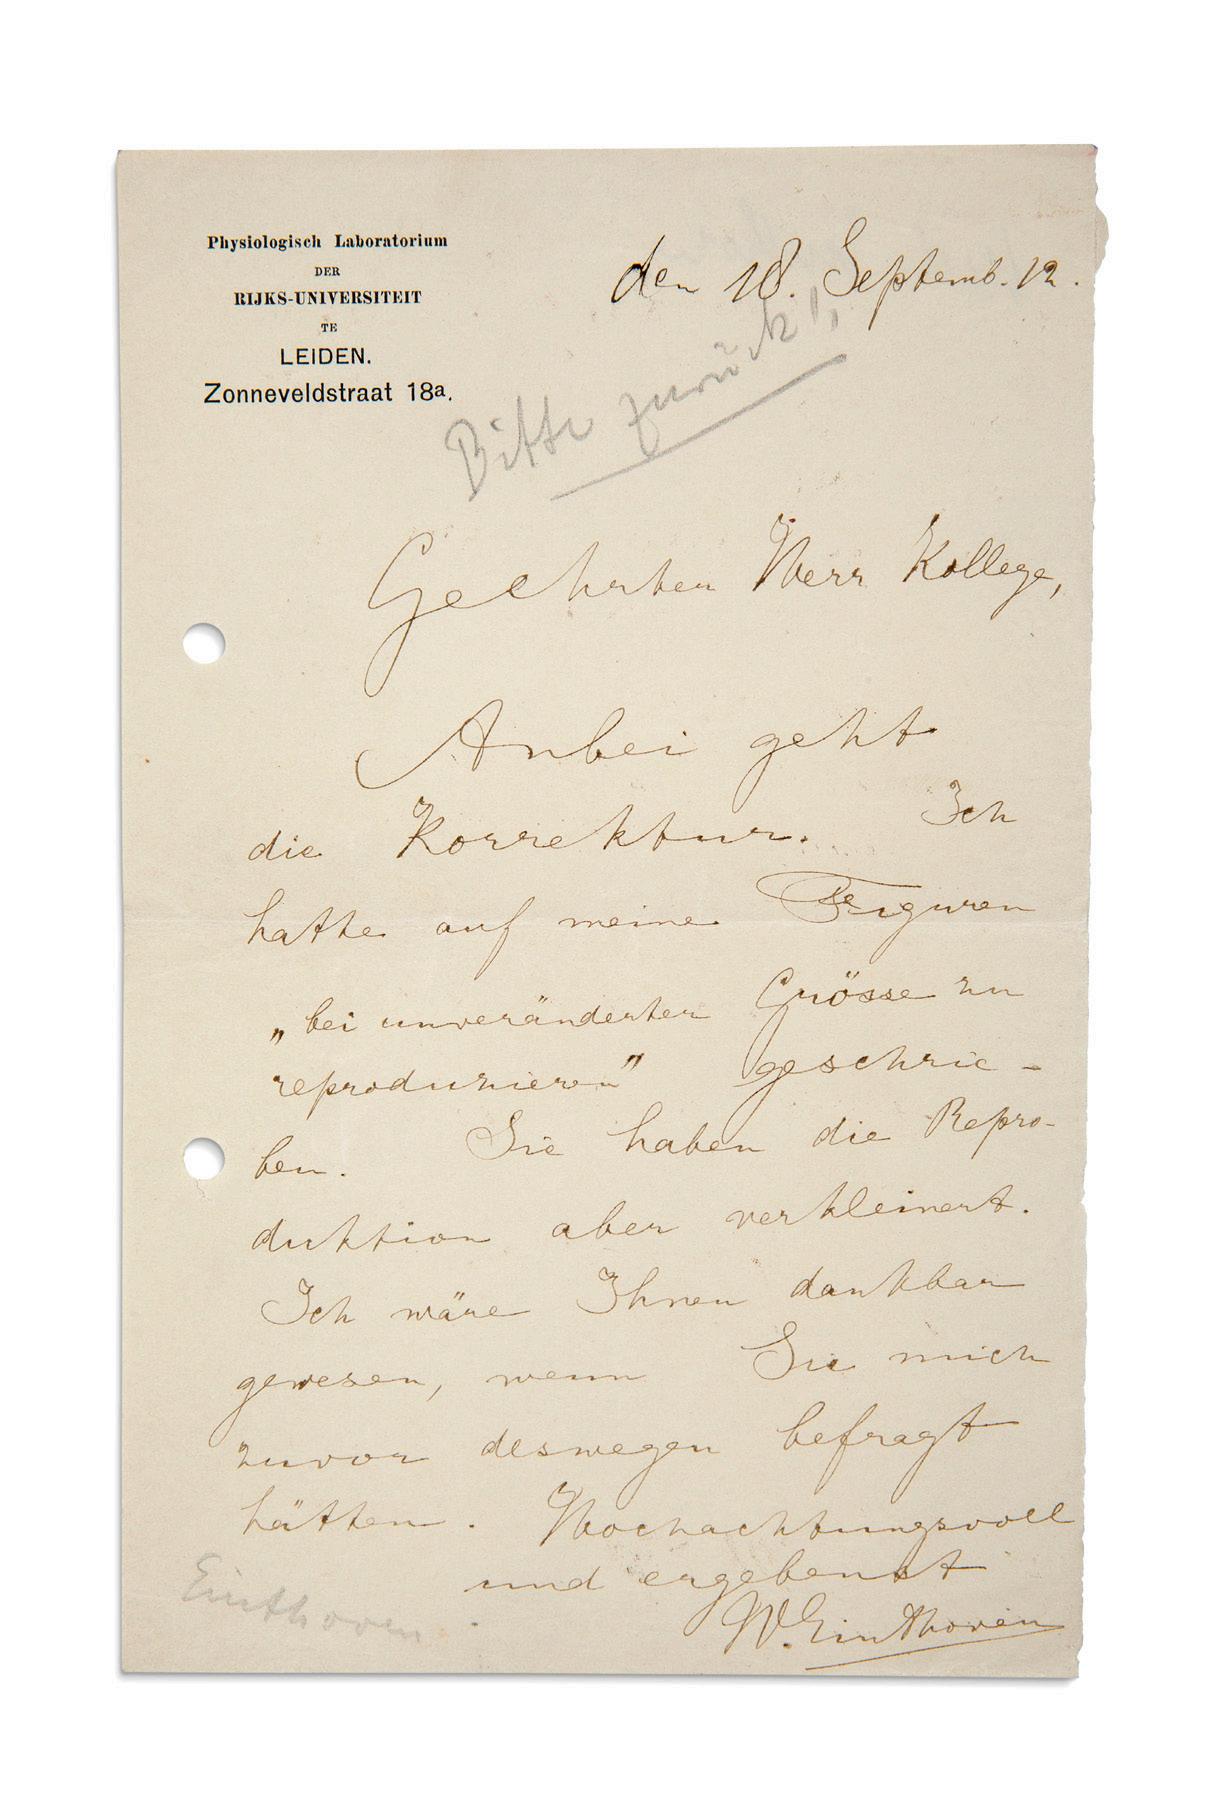 Physiologisch Laboratorium
DER
RIJKS-UNIVERSITEIT
TE
LEIDEN.
Zonneveldstraat 18a.
den 18. Septemb. 12.
Bitte zurück!
Geehrter Herr Kollege,
Anbei geht
die Korrektur. Ich
hatte auf meine Figuren
„bei unveränderter Grösse zu
reproduzieren” geschrie-
ben. Sie haben die Repro-
duktion aber verkleinert.
Ich wäre Ihnen dankbar
gewesen, wenn Sie mich
zuvor deswegen befragt
hätten. Hochachtungsvoll
und ergebenst
W. Einthoven
Einthoven